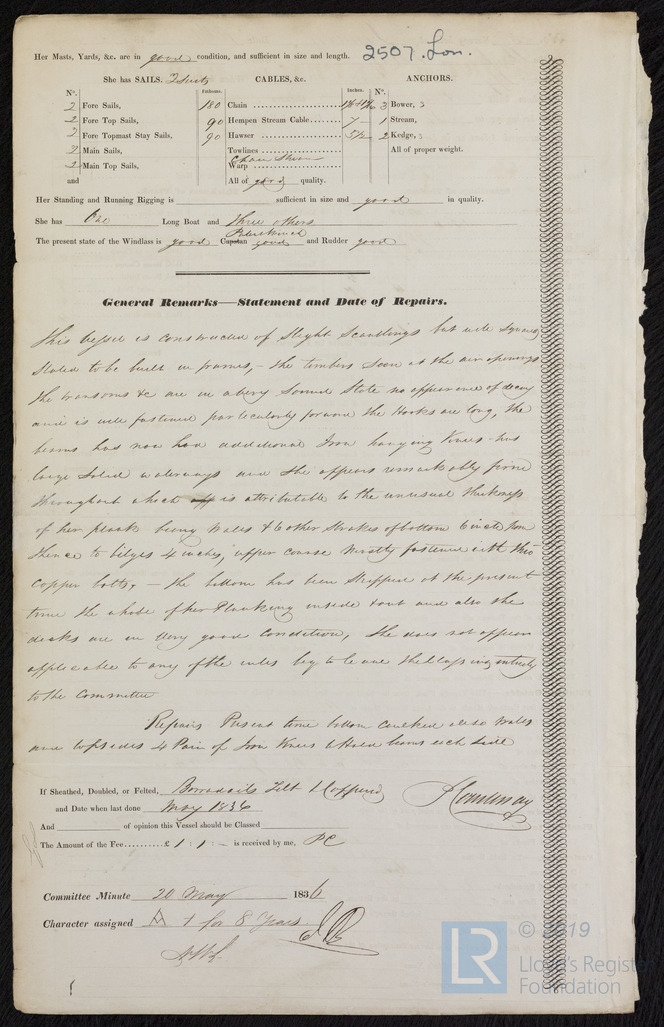 Her Masts, Yards, &c. are in good condition, and sufficient in size and length. 2507. Lon.
She has SAILS. 2 Suits
CABLES, &c.
ANCHORS.
N°.
Fathoms.
Inches.
N°.
2 Fore Sails, 180 Chain 3 Bower,
2 Fore Top Sails, 90 Hempen Stream Cable 7 1 Stream,
2 Fore Topmast Stay Sails, 90 Hawser 5½ 2 Kedge,
2 Main Sails, Towlines All of proper weight.
2 Main Top Sails, Warp
and All of good quality.
Her Standing and Running Rigging is sufficient in size and good in quality.
She has One Long Boat and Three others
The present state of the Windlass is good Capstan good and Rudder good
General Remarks—Statement and Date of Repairs.
This Vessel is constructed of Slight Scantlings but well Squared
Stated to be built in frames, - the timbers Seen at the air openings
the transoms &c are in a very Sound State no appearance of decay
and is well fastened particularly forward the Hooks are long, the
beams has now had additional Iron hanging Knees - has
large Solid waterways and She appears remarkably firm
throughout which is attributable to the unusual thickness
of her plank being Wales & 6 other Strakes of bottom 6 inch from
thence to bilges 4 inches, upper course mostly fastened with this
Copper bolts, - the bottom has been Stripped at the present
time the whole of her Planking inside & out and also the
decks are in Very good Condition, She does not appear
applicable to any of the rules beg to leave the Classing entirely
to the Committee
Repairs Present time bottom caulked also Wales
and topsides 4 Pair of Iron Knees to Hold beams each Side
If Sheathed, Doubled, or Felted, Borradails Felt & Coppered
and Date when last done May 1836
And of opinion this Vessel should be Classed
The Amount of the Fee £ 1 : 1 : - is received by me, PC
Committee Minute 20 May 1836
Character assigned A 1 for 8 Years
LR © 2019
Lloyd's Register
Foundation